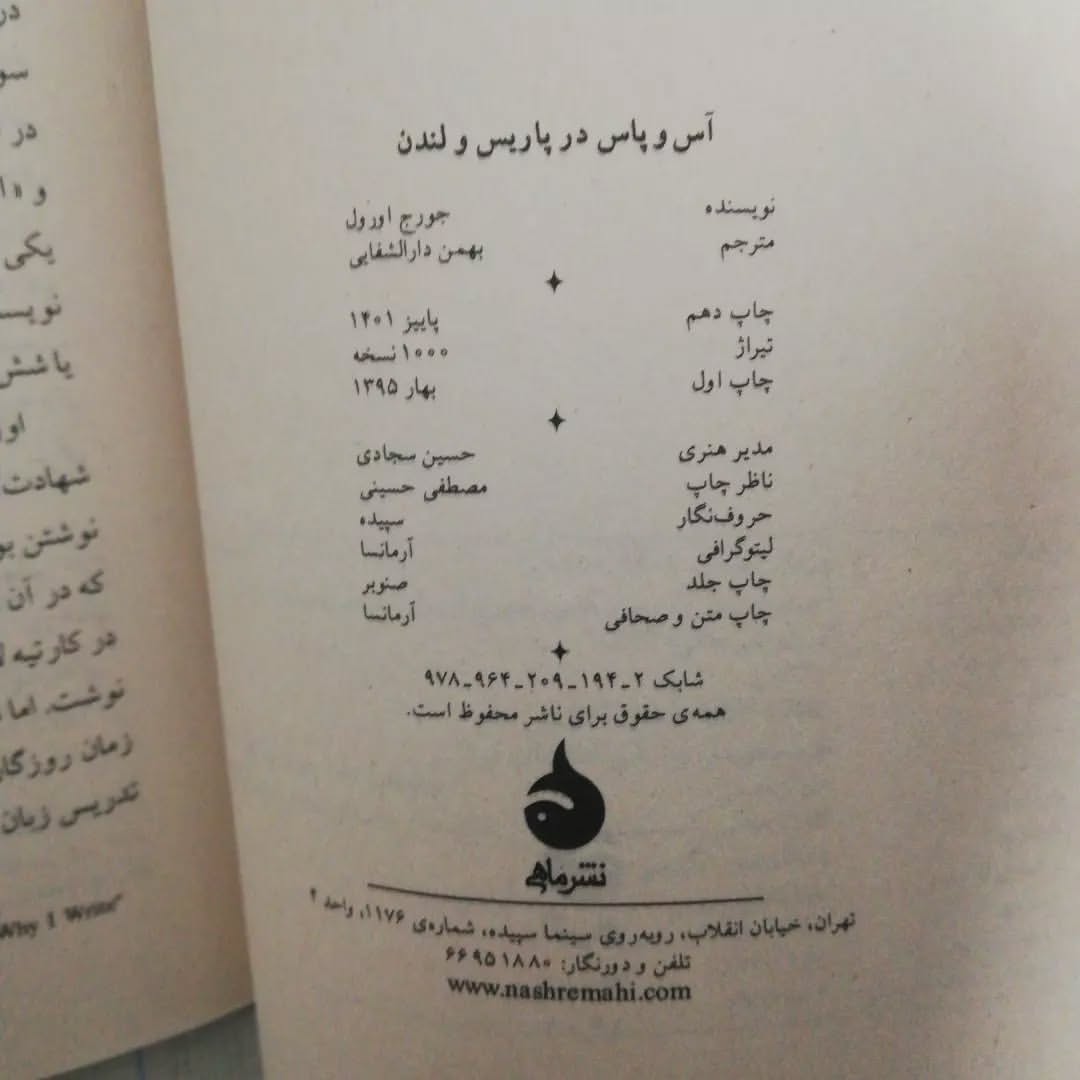 آس و پاس در پاریس و لندن
نویسنده جورج اورول
مترجم بهمن دارالشفایی
چاپ دهم پاییز ۱۴۰۱
تیراژ ۱۰۰۰ نسخه
چاپ اول بهار ۱۳۹۵
مدیر هنری حسین سجادی
ناظر چاپ مصطفی حسینی
حروف‌نگار سپیده
لیتوگرافی آرمانسا
چاپ جلد صنوبر
چاپ متن و صحافی آرمانسا
شابک ۲ـ۱۹۴ـ۲۰۹ـ۹۶۴ـ۹۷۸
همه‌ی حقوق برای ناشر محفوظ است.
نشرماهی
تهران، خیابان انقلاب، روبه‌روی سینما سپیده، شماره‌ی ۱۱۷۶، واحد ۴
تلفن و دورنگار: ۶۶۹۵۱۸۸۰
www.nashremahi.com
در
و
یکی
یا شش
شهادت
نوشتن
که در آن
در کارتیه
نوشت. اما
زمان
تدریس زبان
Why I Write"